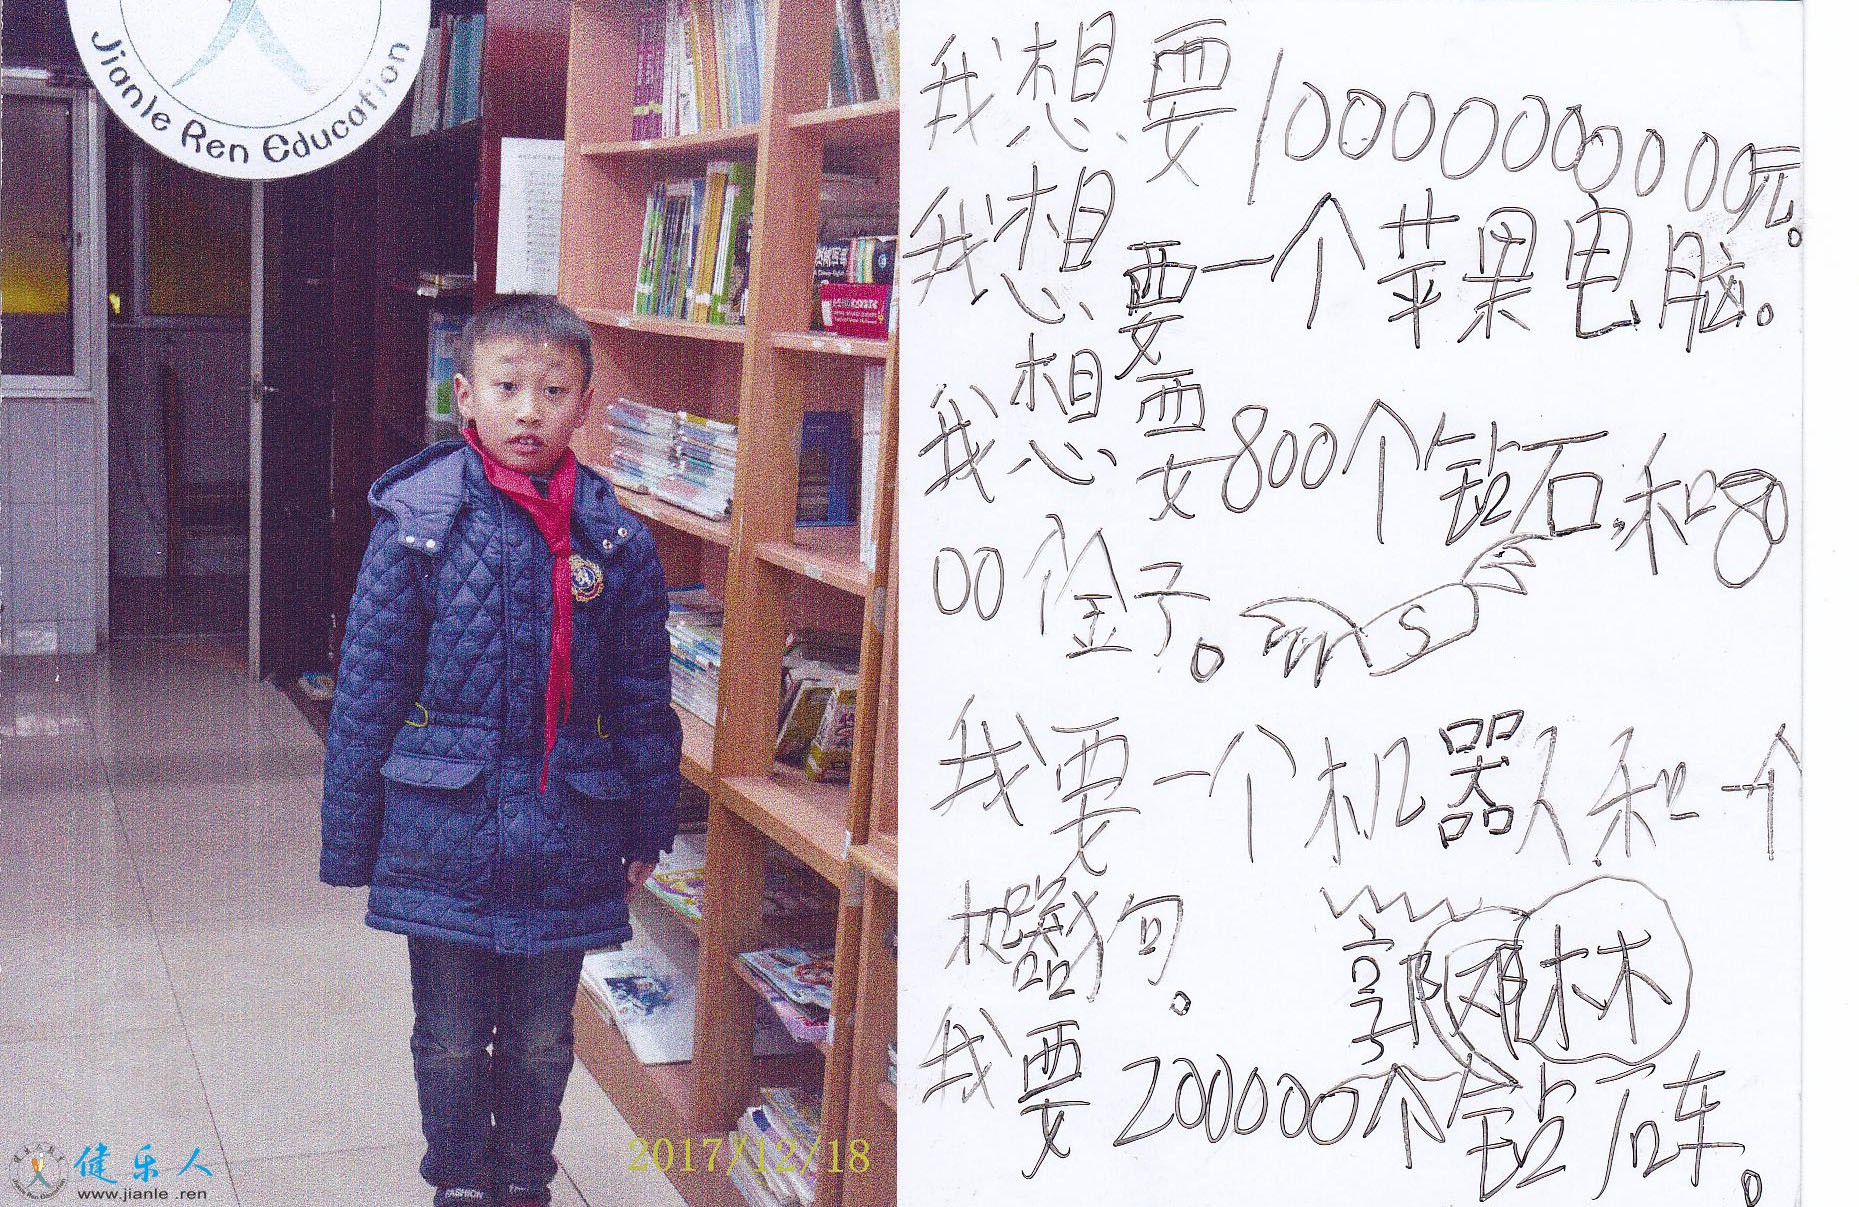 Jianle Ren Education
健乐人
www.jianle.ren
2017/12/18
FASHION
我想要10000000000元。
我想要一个苹果电脑。
我想要800个钻石,和80
00个金子。
S
我要一个机器人和一个
机器狗。
郭 林
我要200000个钻石车。